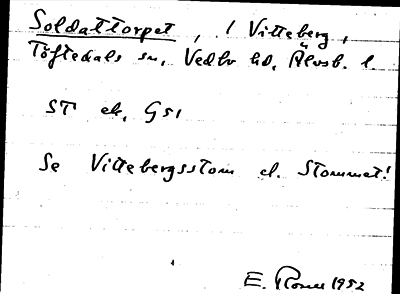 Soldattorpet, / Vitteberg,
Töftedals sn, Vedbo hd, Älvsb. l.
ST ek, GS1
Se Vittebergsstom el. Stommet!
E. 1952